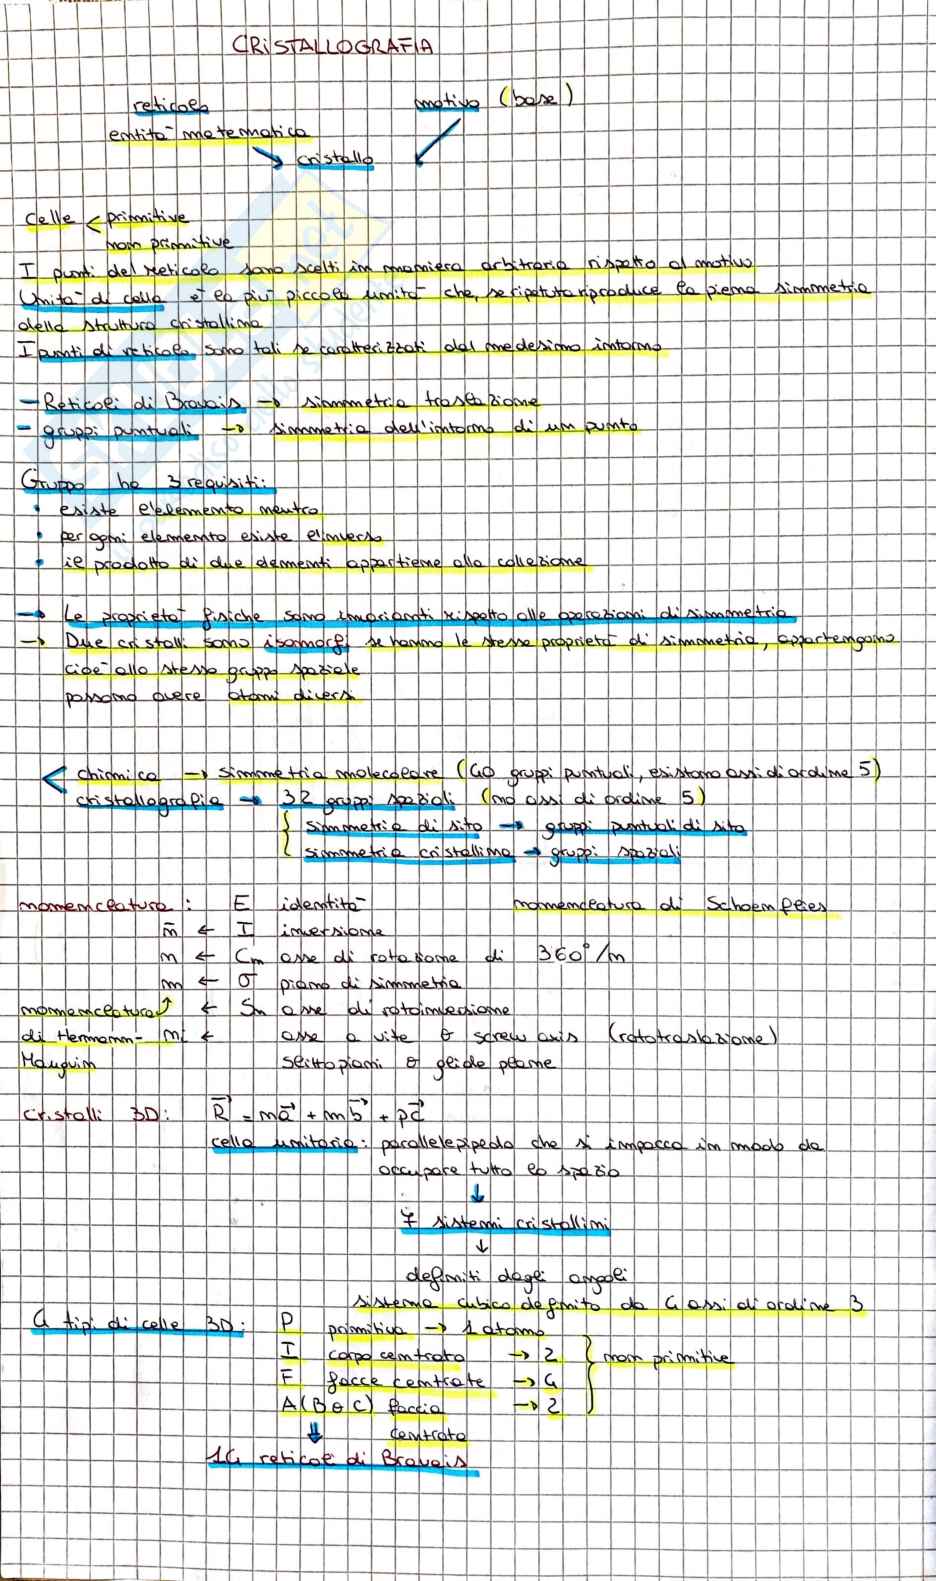 CRISTALLOGRAFIA
reticolo motivo (base)
entità matematica
cristallo
Celle < primitive
non primitive
I punti del reticolo sono scelti in maniera arbitraria rispetto al motivo
Unità di cella è la più piccola unità che, se ripetuta riproduce la piena simmetria
della struttura cristallina
I punti di reticolo sono tali se caratterizzati dal medesimo intorno
- Reticoli di Bravais → simmetria traslazione
- gruppi puntuali → simmetria dell'intorno di un punto
Gruppo ha 3 requisiti:
• esiste l'elemento neutro
• per ogni elemento esiste l'inverso
• il prodotto di due elementi appartiene alla collezione
→ Le proprietà fisiche sono invarianti rispetto alle operazioni di simmetria
→ Due cristalli sono isomorfi se hanno le stesse proprietà di simmetria, appartengono
cioè allo stesso gruppo spaziale
possono avere atomi diversi
< chimica → simmetria molecolare (40 gruppi puntuali, esistono assi di ordine 5)
cristallografia → 32 gruppi spaziali (no assi di ordine 5)
{ simmetria di sito → gruppi puntuali di sito
simmetria cristallina → gruppi spaziali
nomenclatura: E identità nomenclatura di Schoenflies
n̄ ← I inversione
n ← Cn asse di rotazione di 360°/n
m ← σ piano di simmetria
nomenclatura ↑ ← Sn asse di rotoinversione
di Hermann- ni ← asse a vite o screw axis (rototraslazione)
Mauguin slittopiani o glide plane
Cristalli 3D: R⃗ = ma⃗ + nb⃗ + pc⃗
cella unitaria: parallelepipedo che si impacca in modo da
occupare tutto lo spazio
↓
7 sistemi cristallini
↓
definiti dagli angoli
sistema cubico definito da 4 assi di ordine 3
4 tipi di celle 3D: P primitiva → 1 atomo
I corpo centrato → 2 } non primitive
F facce centrate → 4
A (B o C) faccia → 2
↓ centrata
14 reticoli di Bravais